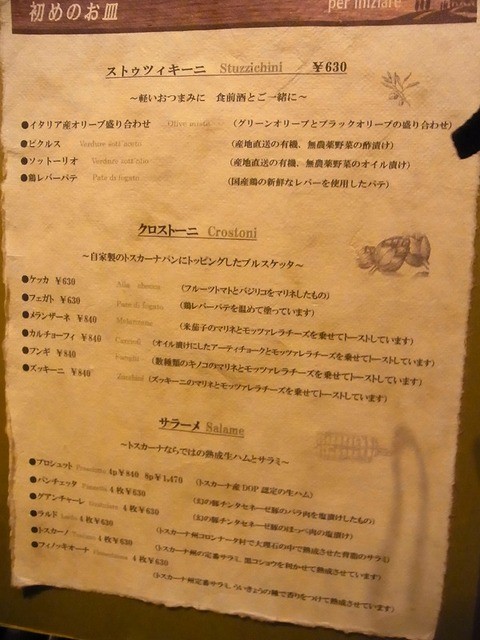 初めのお皿
per iniziare
ストゥツィキーニ Stuzzichini ¥630
～軽いおつまみに 食前酒とご一緒に～
●イタリア産オリーブ盛り合わせ Olive miste (グリーンオリーブとブラックオリーブの盛り合わせ)
●ピクルス Verdure sott'aceto (産地直送の有機、無農薬野菜の酢漬け)
●ソットーリオ Verdure sott'olio (産地直送の有機、無農薬野菜のオイル漬け)
●鶏レバーパテ Pate di fegato (国産鶏の新鮮なレバーを使用したパテ)
クロストーニ Crostoni
～自家製のトスカーナパンにトッピングしたブルスケッタ～
●ケッカ ¥630 Alla checca (フルーツトマトとバジリコをマリネしたもの)
●フェガト ¥630 Pate di fegato (鶏レバーパテを温めて塗っています)
●メランザーネ ¥840 Melanzane (米茄子のマリネとモッツァレラチーズを乗せてトーストしています)
●カルチョーフィ ¥840 Carciofi (オイル漬けにしたアーティチョークとモッツァレラチーズを乗せてトーストしています)
●フンギ ¥840 Funghi (数種類のキノコのマリネとモッツァレラチーズを乗せてトーストしています)
●ズッキーニ ¥840 Zucchini (ズッキーニのマリネとモッツァレラチーズを乗せてトーストしています)
サラーメ Salame
～トスカーナならではの熟成生ハムとサラミ～
●プロシュット Prosciutto 4p¥840 8p¥1,470 (トスカーナ産DOP認定の生ハム)
●パンチェッタ Pancetta 4枚¥630 (幻の豚チンタセネーゼ豚のバラ肉を塩漬けしたもの)
●グアンチャーレ Guanciale 4枚¥630 (幻の豚チンタセネーゼ豚のほっぺ肉の塩漬け)
●ラルド Lardo 4枚¥630 (トスカーナ州コロンナータ村で大理石の中で熟成させた背脂のサラミ)
●トスカーノ Toscano 4枚¥630 (トスカーナ州の定番サラミ、黒コショウを利かせて熟成させています)
●フィノッキオーナ Finocchiona 4枚¥630 (トスカーナ州定番サラミ、ういきょうの種で香りをつけて熟成させています)